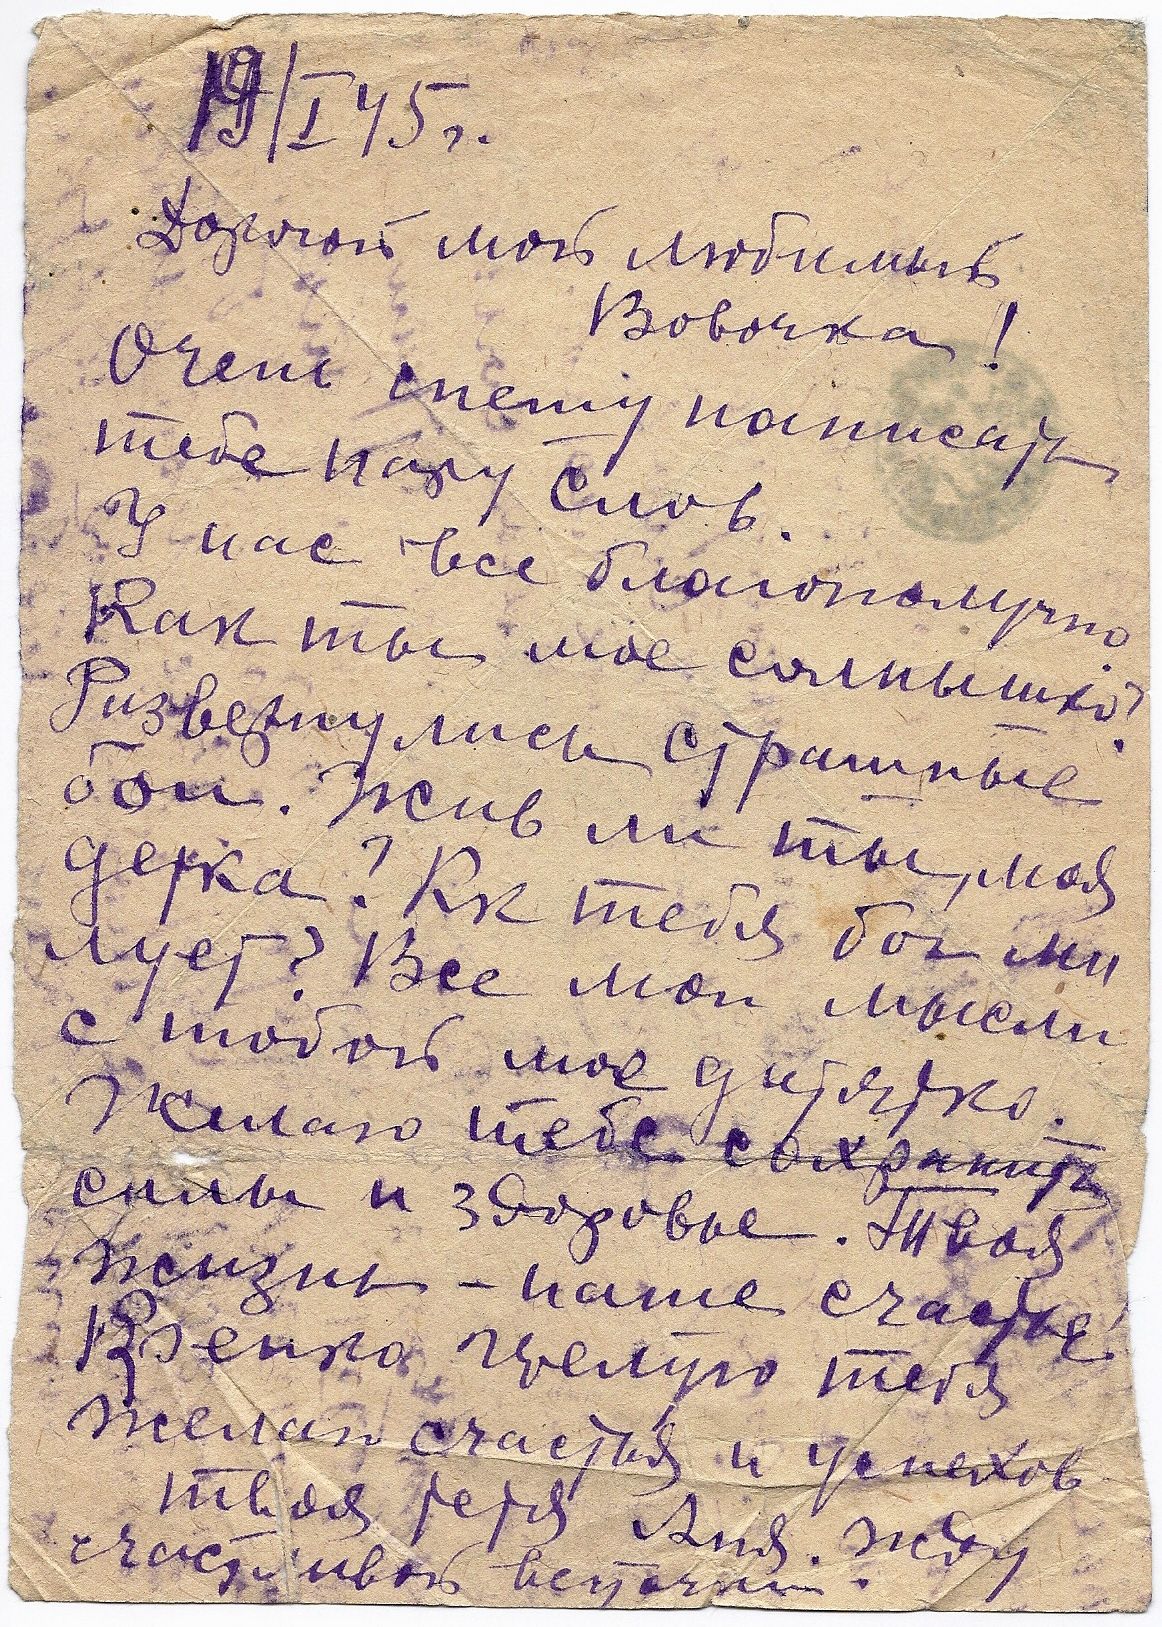 19/I 45 г.
Дорогой мой любимый
Вовочка!
Очень спешу написать
тебе пару слов.
У нас все благополучно.
Как ты мое солнышко?
Развернулись страшные
бои. Жив ли ты, моя
детка? Как тебя бог ми
лует? Все мои мысли
с тобой мое дитятко.
Желаю тебе сохранить
силы и здоровье. Твоя
жизнь - наше счастье!
Крепко целую тебя
желаю счастья и успехов
твоя тетя Аня. Жду
счастливой встречи.